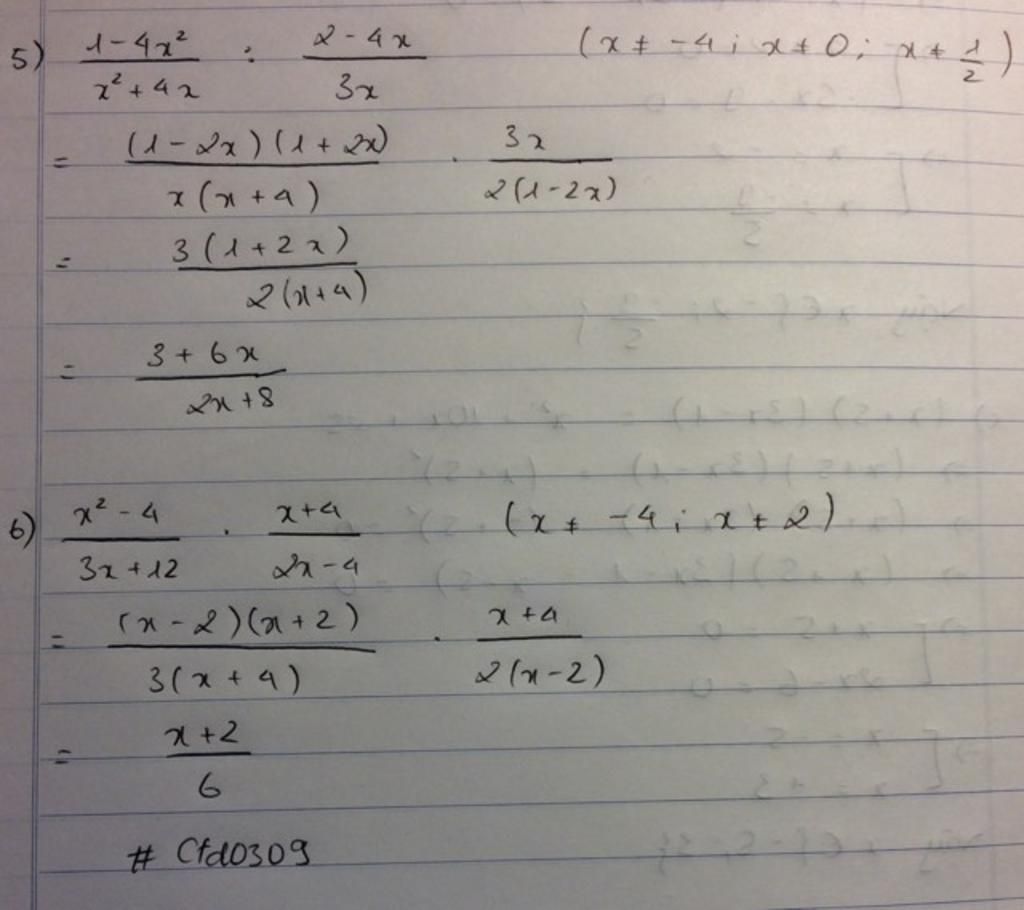 5) (1-4x²)/(x²+4x) : (2-4x)/(3x) (x ≠ -4; x ≠ 0; x ≠ 1/2)
= ((1-2x)(1+2x))/(x(x+4)) . (3x)/(2(1-2x))
= (3(1+2x))/(2(x+4))
= (3+6x)/(2x+8)
6) (x²-4)/(3x+12) . (x+4)/(2x-4) (x ≠ -4; x ≠ 2)
= ((x-2)(x+2))/(3(x+4)) . (x+4)/(2(x-2))
= (x+2)/6
# Cfd0309